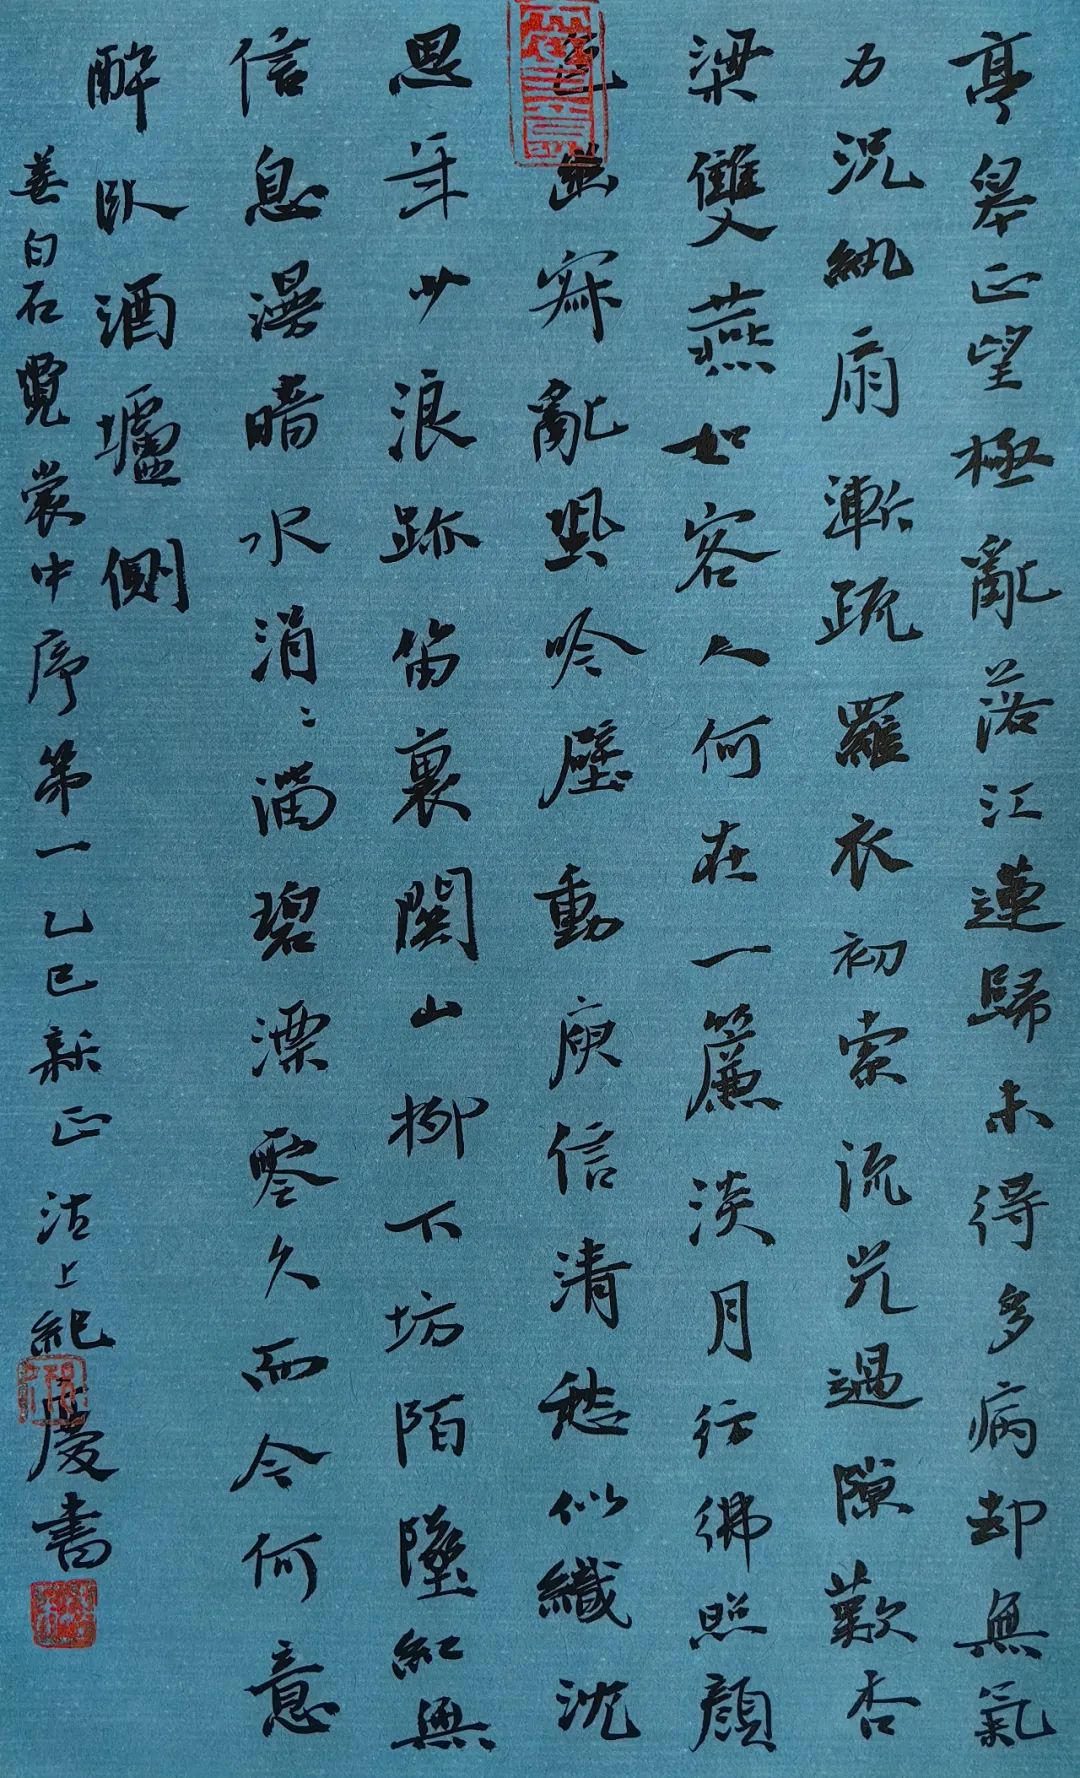 亭皋正望極亂落江蓮歸未得多病却無氣
力況紈扇漸疏羅衣初索流光過隙歎杏
梁雙燕如客人何在一簾淡月彷彿照顏
色幽寂亂蛩吟壁動庾信清愁似織沈
思年少浪跡笛裏關山柳下坊陌墜紅無
信息漫暗水涓〻溜碧漂零久而今何意
醉臥酒壚側
姜白石霓裳中序第一乙巳新正沽上紀慶書